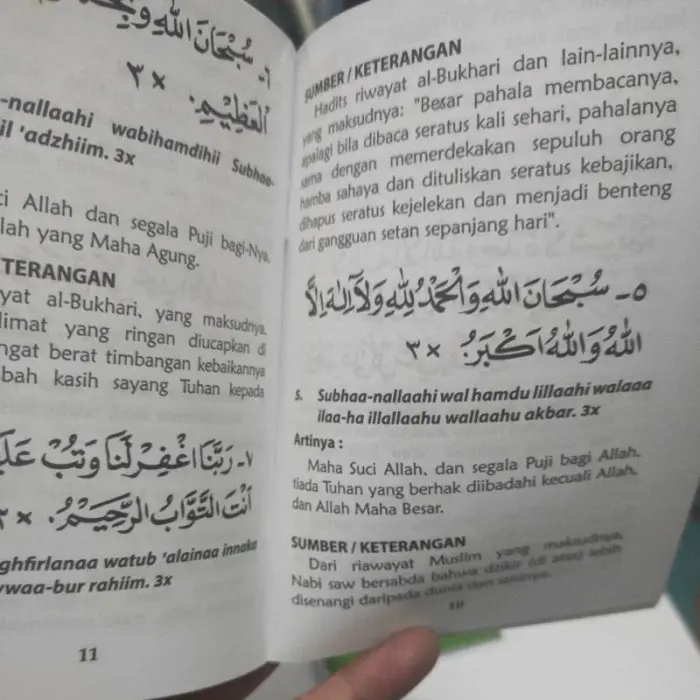 SUMBER / KETERANGAN
Hadits riwayat al-Bukhari dan lain-lainnya,
yang maksudnya: "Besar pahala membacanya,
apalagi bila dibaca seratus kali sehari, pahalanya
sama dengan memerdekakan sepuluh orang
hamba sahaya dan dituliskan seratus kebajikan,
dihapus seratus kejelekan dan menjadi benteng
dari gangguan setan sepanjang hari".
٥ـ سُبْحَانَ اللهِ وَالْحَمْدُ لِلّٰهِ وَلَآ اِلٰهَ اِلَّا
اللهُ وَاللهُ اَكْبَرُ. × ٣
5. Subhaa-nallaahi wal hamdu lillaahi walaaa
ilaa-ha illallaahu wallaahu akbar. 3x
Artinya :
Maha Suci Allah, dan segala Puji bagi Allah,
tiada Tuhan yang berhak diibadahi kecuali Allah,
dan Allah Maha Besar.
SUMBER / KETERANGAN
Dari riawayat Muslim yang maksudnya,
Nabi saw bersabda bahwa dzikir (di atas) lebih
disenangi daripada dunia dan
٦ـ سُبْحَانَ اللهِ
الْعَظِيْمِ. × ٣
-nallaahi wabihamdihii Subhaa-
il 'adzhiim. 3x
ci Allah dan segala Puji bagi-Nya,
lah yang Maha Agung.
TERANGAN
yat al-Bukhari, yang maksudnya,
limat yang ringan diucapkan di
ngat berat timbangan kebaikannya
bah kasih sayang Tuhan kepada
٧ـ رَبَّنَا اغْفِرْلَنَا وَتُبْ عَلَيْ
اَنْتَ التَّوَّابُ الرَّحِيْمُ. ×
ghfirlanaa watub 'alainaa innaka
wwaa-bur rahiim. 3x
11